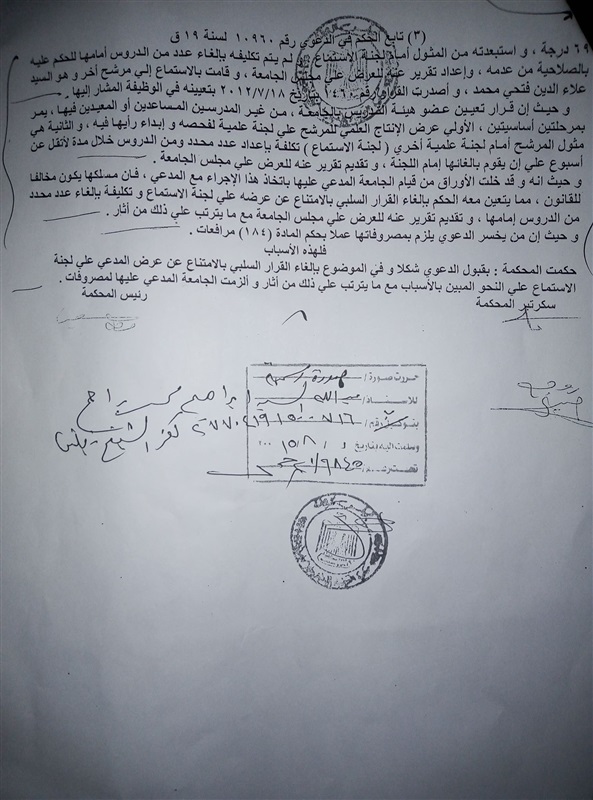 (٣) تابع الحكم في الدعوي رقم ١٠٩٦٠ لسنة ١٩ ق
٦٩ درجة ، و استبعدته من المثول أمام لجنة الاستماع و لم يتم تكليفه بإلغاء عدد من الدروس أمامها للحكم عليه
بالصلاحية من عدمه ، وإعداد تقرير عنه للعرض علي مجلس الجامعة ، و قامت بالاستماع إلي مرشح أخر و هو السيد
علاء الدين فتحي محمد ، و أصدرت القرار رقم بتاريخ ٢٠١٢/٧/١٨ بتعيينه في الوظيفة المشار إليها .
و حيث إن قرار تعيين عضو هيئة التدريس بالجامعة ، من غير المدرسين المساعدين أو المعيدين فيها ، يمر
بمرحلتين أساسيتين ، الأولي عرض الإنتاج العلمي للمرشح علي لجنة علمية لفحصه و إبداء رأيها فيه ، و الثانية هي
مثول المرشح أمام لجنة علمية أخري ( لجنة الاستماع ) تكلفة بإعداد عدد محدد ومن الدروس خلال مدة لاتقل عن
أسبوع علي إن يقوم بالغانها إمام اللجنة ، و تقديم تقرير عنه للعرض علي مجلس الجامعة .
و حيث انه و قد خلت الأوراق من قيام الجامعة المدعي عليها باتخاذ هذا الإجراء مع المدعي ، فان مسلكها يكون مخالفا
للقانون ، مما يتعين معه الحكم بإلغاء القرار السلبي بالامتناع عن عرضه علي لجنة الاستماع و تكليفة بإلغاء عدد محدد
من الدروس إمامها ، و تقديم تقرير عنه للعرض علي مجلس الجامعة مع ما يترتب علي ذلك من أثار .
و حيث إن من يخسر الدعوي يلزم بمصروفاتها عملا بحكم المادة (١٨٤) مرافعات .
فلهذه الأسباب
حكمت المحكمة : بقبول الدعوي شكلا و في الموضوع بإلغاء القرار السلبي بالامتناع عن عرض المدعي علي لجنة
الاستماع علي النحو المبين بالأسباب مع ما يترتب علي ذلك من أثار و ألزمت الجامعة المدعي عليها لمصروفات .
سكرتير المحكمة رئيس المحكمة
حررت صورة /
للأستاذ / عبدالله السيد ابراهيم
وسلمت اليه بتاريخ